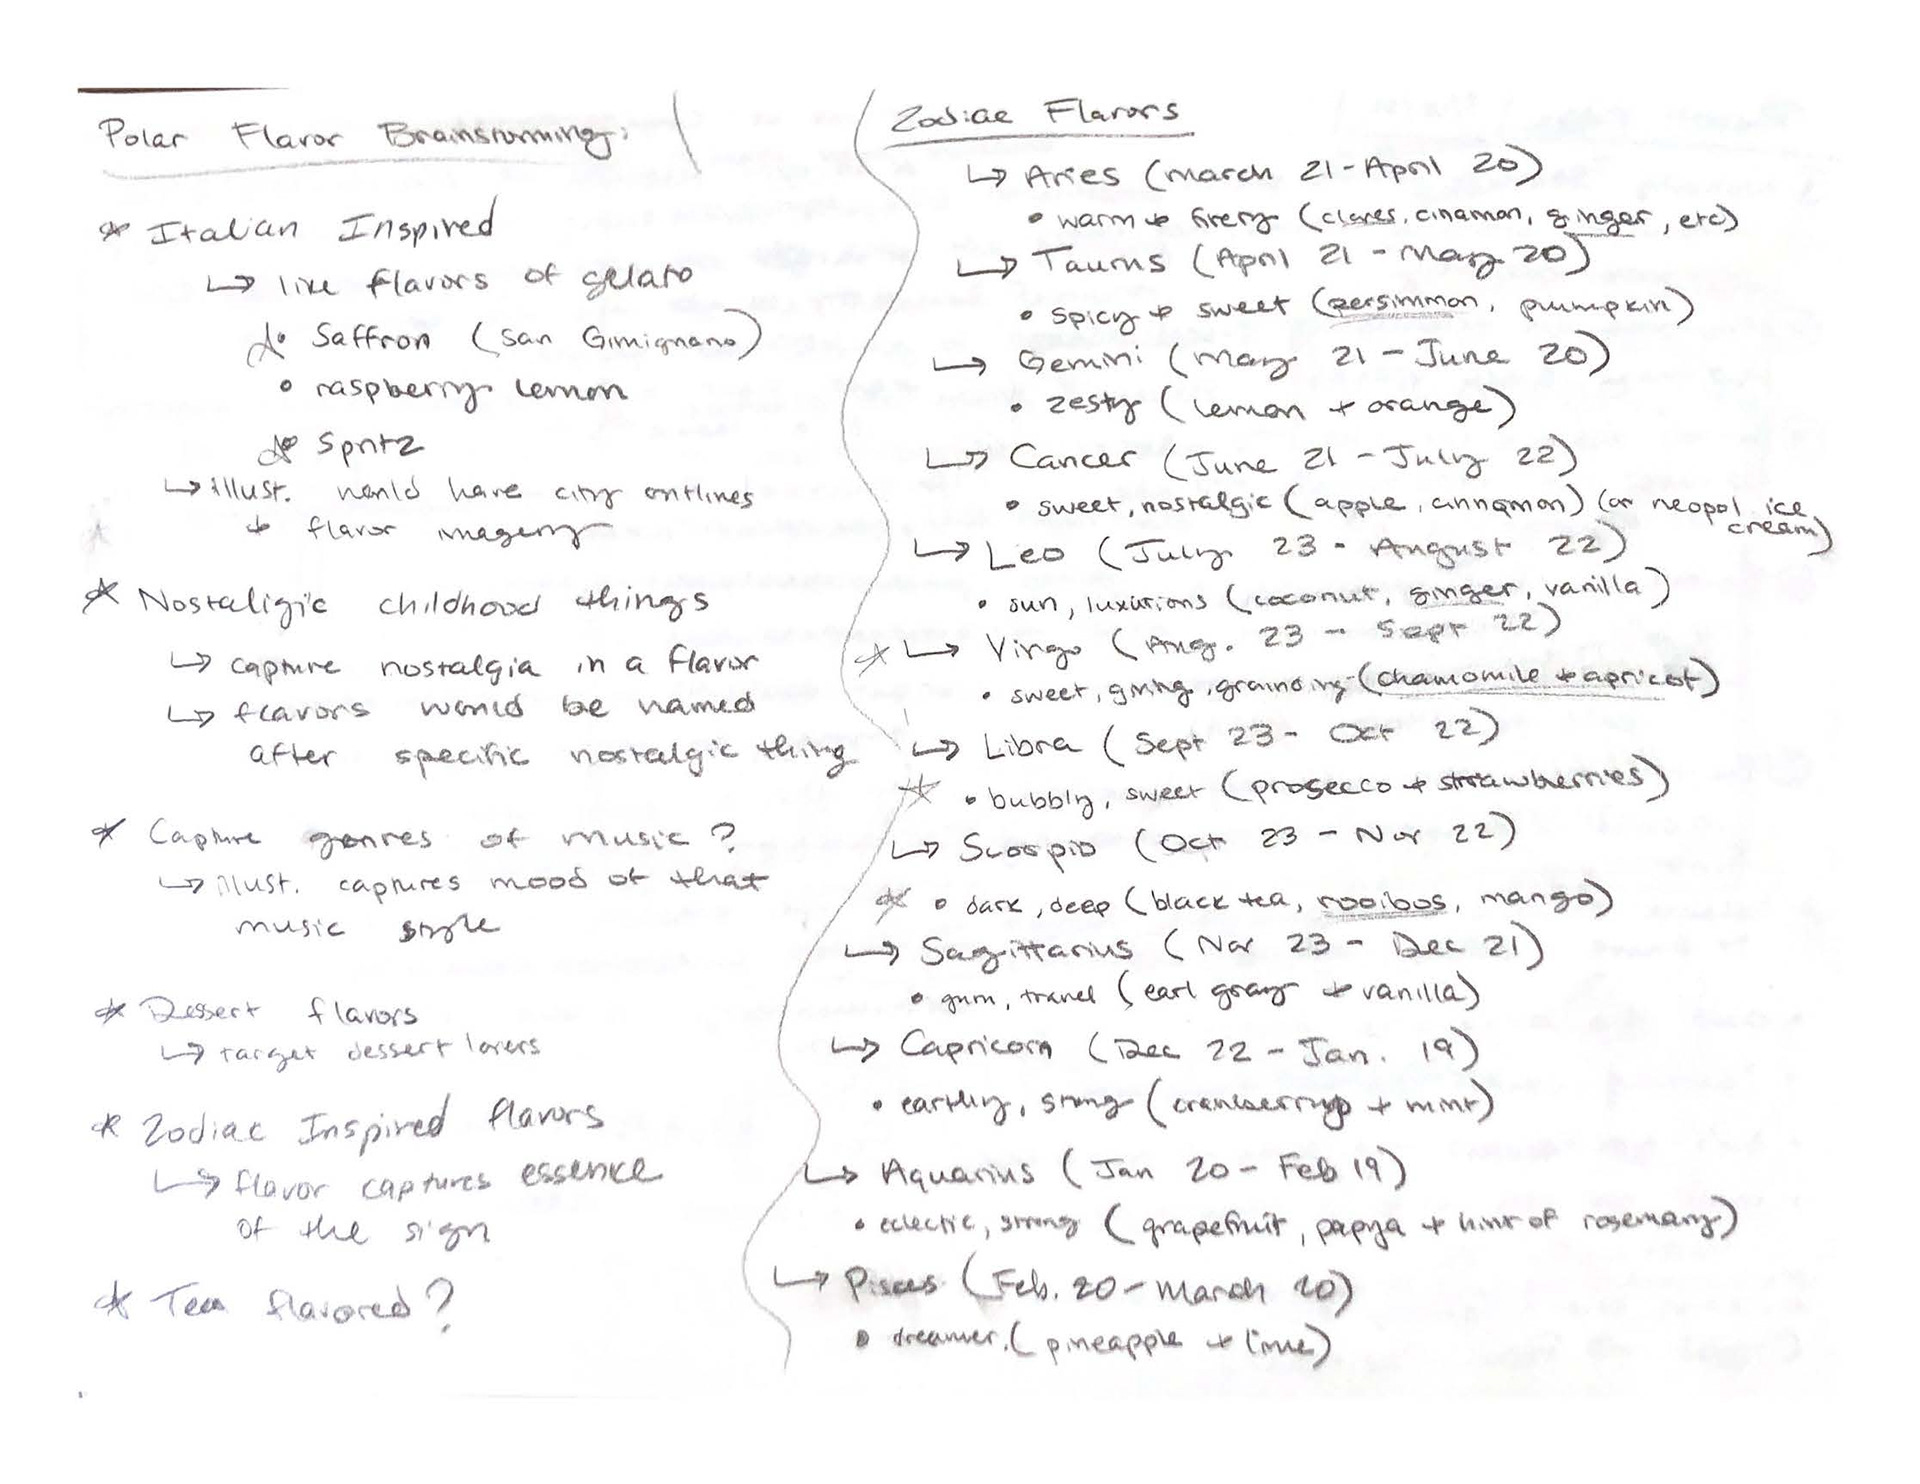 Polar Flavor Brainstorming:
* Italian Inspired
↳ like flavors of gelato
* • Saffron (San Gimignano)
• raspberry lemon
* • Spritz
↳ illust. would have city outlines
+ flavor imagery
* Nostaligic childhood things
↳ capture nostalgia in a flavor
↳ flavors would be named
after specific nostalgic thing
* Capture genres of music?
↳ illust. captures mood of that
music style
* Dessert flavors
↳ target dessert lovers
* Zodiac Inspired flavors
↳ flavor captures essence
of the sign
* Tea flavored?
Zodiac Flavors
↳ Aries (march 21-April 20)
• warm + firery (cloves, cinamon, ginger, etc)
↳ Taurus (April 21 - May 20)
• spicy + sweet (persimmon, pumpkin)
↳ Gemini (May 21 - June 20)
• zesty (lemon + orange)
↳ Cancer (June 21 - July 22)
• sweet, nostalgic (apple, cinnamon) (or neopol. ice
cream)
↳ Leo (July 23 - August 22)
• sun, luxurious (coconut, ginger, vanilla)
* ↳ Virgo (Aug. 23 - Sept 22)
• sweet, giving, grounding (chamomile + apricot)
↳ Libra (Sept 23 - Oct 22)
* • bubbly, sweet (prosecco + strawberries)
↳ Scorpio (Oct 23 - Nov 22)
* • dark, deep (black tea, rooibos, mango)
↳ Sagittarius (Nov 23 - Dec 21)
• travel (earl gray + vanilla)
↳ Capricorn (Dec 22 - Jan. 19)
• earthy, strong (cranberry + mint)
↳ Aquarius (Jan 20 - Feb 19)
• eclectic, strong (grapefruit, papya + hint of rosemary)
↳ Pisces (Feb. 20 - March 20)
• dreamer, (pineapple + lime)